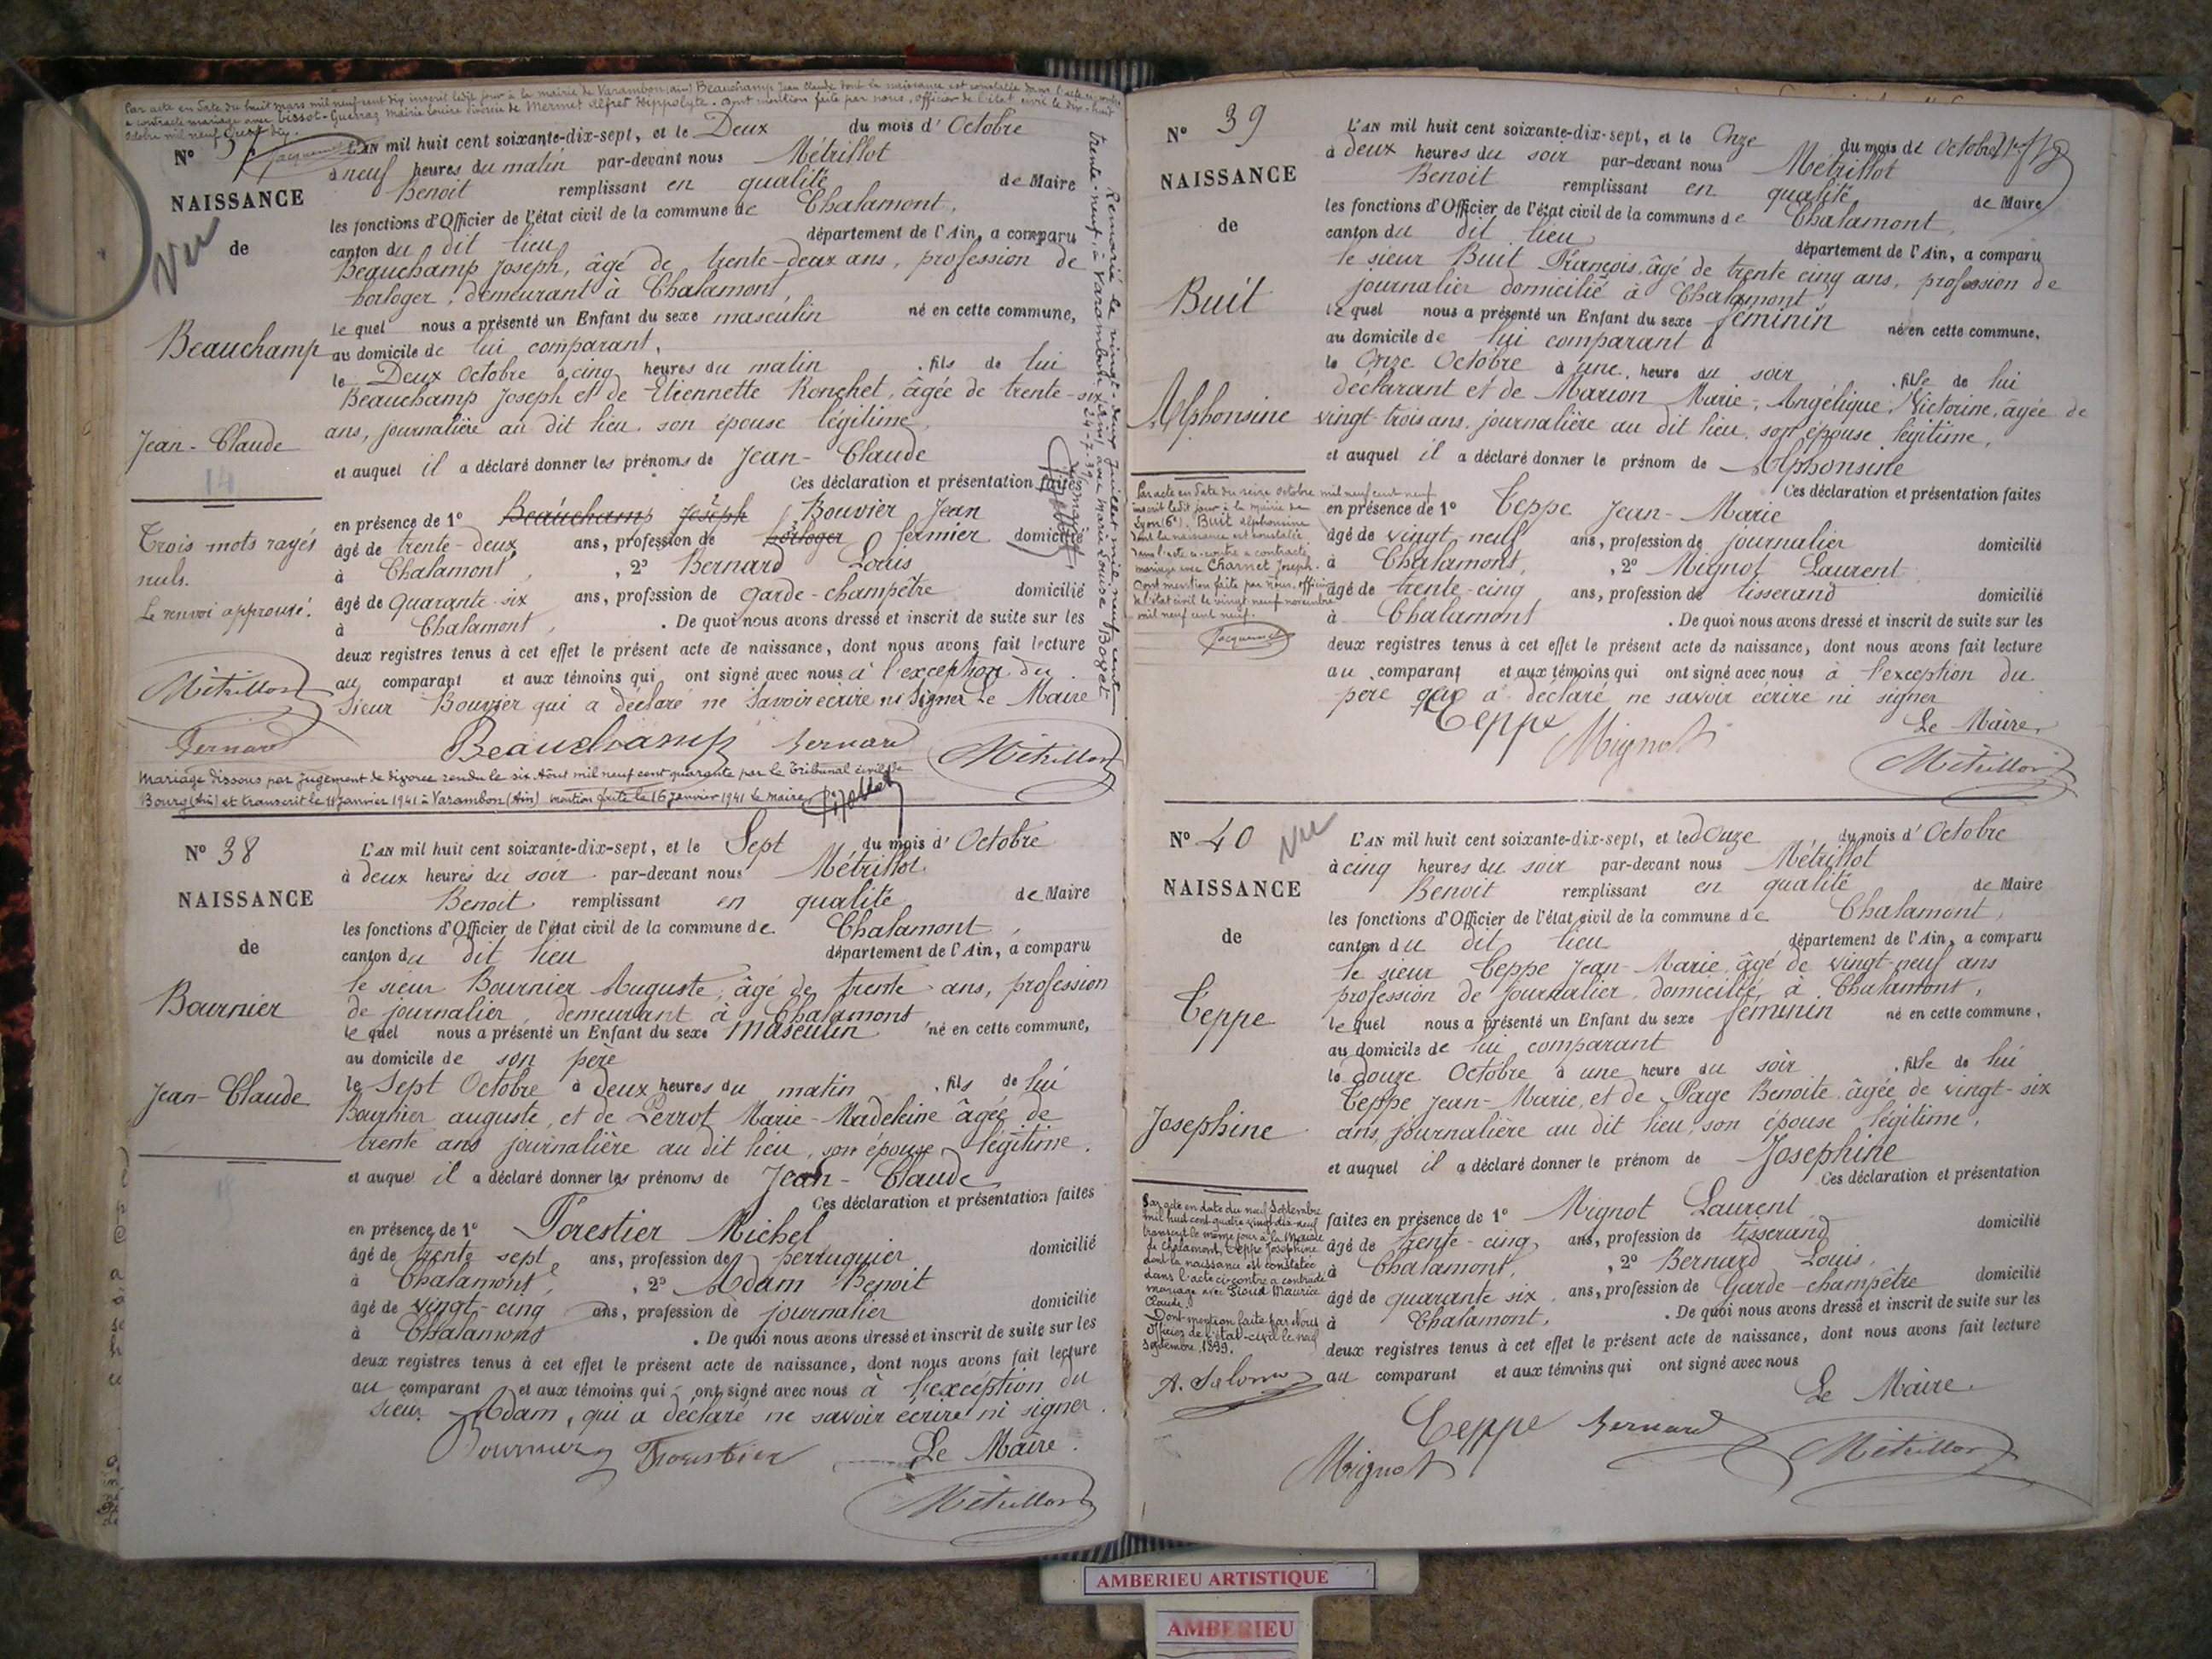 Par acte en date du huit mars mil neuf cent dix inscrit ledit jour à la mairie de Varambon (ain) Beauchamp Jean Claude dont la naissance est constatée dans l'acte ci-contre
a contracté mariage avec Bissot-Guerraz Marie Louise divorcée de Mermet Alfred Hippolyte. Dont mention faite par nous, officier de l'état civil le dix-huit
Octobre mil neuf cent dix.
N° 37
NAISSANCE
de
Vu
Beauchamp
Jean-Claude
14
Trois mots rayés
nuls.
Le renvoi approuvé.
Métrillot
Bernard
L'AN mil huit cent soixante-dix-sept, et le Deux du mois d'Octobre
à neuf heures du matin par-devant nous Métrillot
Benoit remplissant en qualité de Maire
les fonctions d'Officier de l'état civil de la commune de Chalamont,
canton du dit lieu département de l'Ain, a comparu
Beauchamp Joseph, âgé de trente-deux ans, profession de
horloger, demeurant à Chalamont,
le quel nous a présenté un Enfant du sexe masculin né en cette commune,
au domicile de lui comparant,
le Deux Octobre à cinq heures du matin . fils de lui
Beauchamp Joseph et de Etiennette Ronchet, âgée de trente-six
ans, journalière au dit lieu, son épouse légitime,
et auquel il a déclaré donner les prénoms de Jean-Claude
Ces déclaration et présentation faites
en présence de 1° Beauchamp Joseph Bouvier Jean
âgé de trente-deux ans, profession de horloger fermier domicilié
à Chalamont, , 2° Bernard Louis
âgé de quarante-six ans, profession de garde-champêtre domicilié
à Chalamont, . De quoi nous avons dressé et inscrit de suite sur les
deux registres tenus à cet effet le présent acte de naissance, dont nous avons fait lecture
au comparant et aux témoins qui ont signé avec nous à l'exception du
Sieur Bouvier qui a déclaré ne savoir écrire ni signer Le Maire
Beauchamp Bernard Métrillot
Remarié le vingt-deux Juillet mil neuf cent
trente-neuf, à Varambon (ain) avec Marie Louise Boyet
24-7-39
Le maire
Mariage dissous par jugement de divorce rendu le six Août mil neuf cent quarante par le Tribunal civil de
Bourg (Ain) et transcrit le 11 Janvier 1941 à Varambon (Ain) mention faite le 16 Janvier 1941 Le maire
N° 38
NAISSANCE
de
Bournier
Jean-Claude
L'AN mil huit cent soixante-dix-sept, et le Sept du mois d'Octobre
à deux heures du soir par-devant nous Métrillot
Benoit remplissant en qualité de Maire
les fonctions d'Officier de l'état civil de la commune de Chalamont,
canton du dit lieu département de l'Ain, a comparu
le sieur Bournier Auguste, âgé de trente ans, profession
de journalier, demeurant à Chalamont
le quel nous a présenté un Enfant du sexe Masculin né en cette commune,
au domicile de son père
le Sept Octobre à deux heures du matin . fils de lui
Bournier auguste, et de Perrot Marie-Madeleine âgée de
trente ans journalière au dit lieu, son épouse légitime.
et auquel il a déclaré donner les prénoms de Jean-Claude
Ces déclaration et présentation faites
en présence de 1° Forestier Michel
âgé de trente sept ans, profession de perruquier domicilié
à Chalamont, , 2° Adam Benoit
âgé de vingt-cinq ans, profession de journalier domicilié
à Chalamont . De quoi nous avons dressé et inscrit de suite sur les
deux registres tenus à cet effet le présent acte de naissance, dont nous avons fait lecture
au comparant et aux témoins qui ont signé avec nous à l'exception du
sieur Adam, qui a déclaré ne savoir écrire ni signer.
Bournier Forestier Le Maire.
Métrillot
N° 39
NAISSANCE
de
Buit
Alphonsine
Par acte en date du seize octobre mil neuf cent neuf
inscrit ledit jour à la mairie de
Lyon (6e). Buit Alphonsine
dont la naissance est constatée
dans l'acte ci-contre a contracté
mariage avec Charnet Joseph.
Dont mention faite par nous, officier
de l'état civil le vingt neuf novembre
mil neuf cent neuf.
L'AN mil huit cent soixante-dix-sept, et le Onze du mois de Octobre
à deux heures du soir par-devant nous Métrillot
Benoit remplissant en qualité de Maire
les fonctions d'Officier de l'état civil de la commune de Chalamont,
canton du dit lieu département de l'Ain, a comparu
le sieur Buit François, âgé de trente cinq ans, profession de
journalier domicilié à Chalamont,
le quel nous a présenté un Enfant du sexe féminin né en cette commune,
au domicile de lui comparant
le Onze Octobre à une heure du soir . fille de lui
déclarant et de Marion Marie, Angélique, Victorine, âgée de
vingt trois ans, journalière au dit lieu, son épouse légitime,
et auquel il a déclaré donner le prénom de Alphonsine
Ces déclaration et présentation faites
en présence de 1° Teppe Jean-Marie
âgé de vingt neuf ans, profession de journalier domicilié
à Chalamont, , 2° Mignot Laurent
âgé de trente-cinq ans, profession de tisserand domicilié
à Chalamont . De quoi nous avons dressé et inscrit de suite sur les
deux registres tenus à cet effet le présent acte de naissance, dont nous avons fait lecture
au comparant et aux témoins qui ont signé avec nous à l'exception du
père qui a déclaré ne savoir écrire ni signer
Teppe Mignot Le Maire,
Métrillot
N° 40
Vu
NAISSANCE
de
Teppe
Josephine
Par acte en date du neuf Septembre
mil huit cent quatre vingt dix-neuf
transcrit le même jour à la Mairie
de Chalamont, Teppe Josephine
dont la naissance est constatée
dans l'acte ci-contre a contracté
mariage avec Pioud Maurice
Claude.
Dont mention faite par Nous
Officier de l'état-civil le neuf
Septembre 1899.
L'AN mil huit cent soixante-dix-sept, et le douze du mois d'Octobre
à cinq heures du soir par-devant nous Métrillot
Benoit remplissant en qualité de Maire
les fonctions d'Officier de l'état civil de la commune de Chalamont,
canton du dit lieu département de l'Ain, a comparu
le sieur Teppe Jean-Marie, âgé de vingt neuf ans
profession de journalier, domicilié, à Chalamont,
le quel nous a présenté un Enfant du sexe féminin né en cette commune,
au domicile de lui comparant
le douze Octobre à une heure du soir . fille de lui
Teppe Jean-Marie, et de Page Benoite âgée de vingt-six
ans, journalière au dit lieu, son épouse légitime,
et auquel il a déclaré donner le prénom de Josephine
Ces déclaration et présentation
faites en présence de 1° Mignot Laurent
âgé de trente-cinq ans, profession de tisserand domicilié
à Chalamont, , 2° Bernard Louis,
âgé de quarante six ans, profession de Garde-champêtre domicilié
à Chalamont, . De quoi nous avons dressé et inscrit de suite sur les
deux registres tenus à cet effet le présent acte de naissance, dont nous avons fait lecture
au comparant et aux témoins qui ont signé avec nous
Le Maire.
Teppe Bernard
Mignot Métrillot
AMBERIEU ARTISTIQUE
AMBERIEU